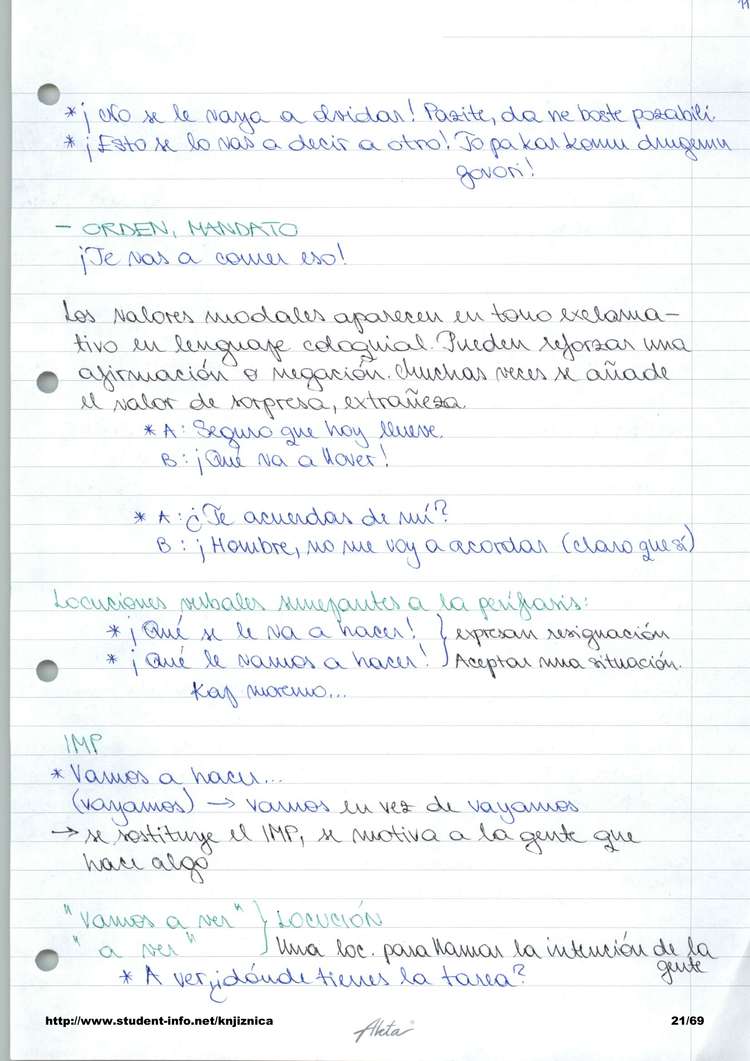 11
* ¡No se le vaya a olvidar! Pazite, da ne boste pozabili.
* ¡Esto se lo vas a decir a otro! To pa kar komu drugemu
govori!
- ORDEN, MANDATO
¡Te vas a comer eso!
Los valores modales aparecen en tono exclama-
tivo en lenguaje coloquial. Pueden reforzar una
afirmación o negación. Muchas veces se añade
el valor de sorpresa, extrañeza.
* A: Seguro que hoy llueve.
B: ¡Qué va a llover!
* A: ¿Te acuerdas de mí?
B: ¡Hombre, no me voy a acordar (claro que sí)
Locuciones verbales semejantes a la perífrasis:
* ¡Qué se le va a hacer! } expresan resignación
* ¡Qué le vamos a hacer! } Aceptar una situación.
Kaj moremo...
IMP
* Vamos a hacer...
(vayamos) → vamos en vez de vayamos
→ se sostituye el IMP, se motiva a la gente que
hace algo
"Vamos a ver" } LOCUCIÓN
"a ver" } Una loc. para llamar la intención de la
gente
* A ver, ¿dónde tienes la tarea?
http://www.student-info.net/knjiznica
Akta
21/69